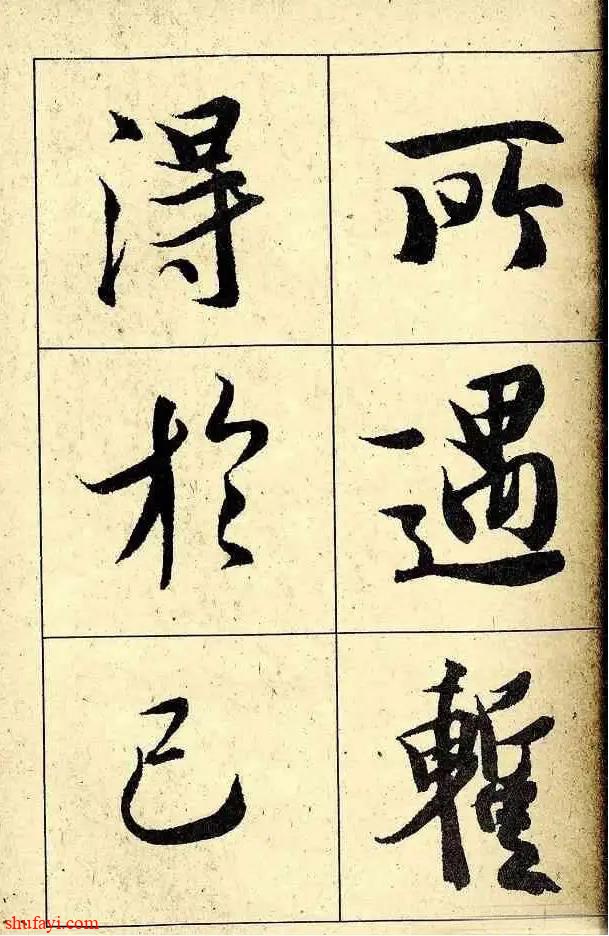 所遇暫
得於己
shufayi.com